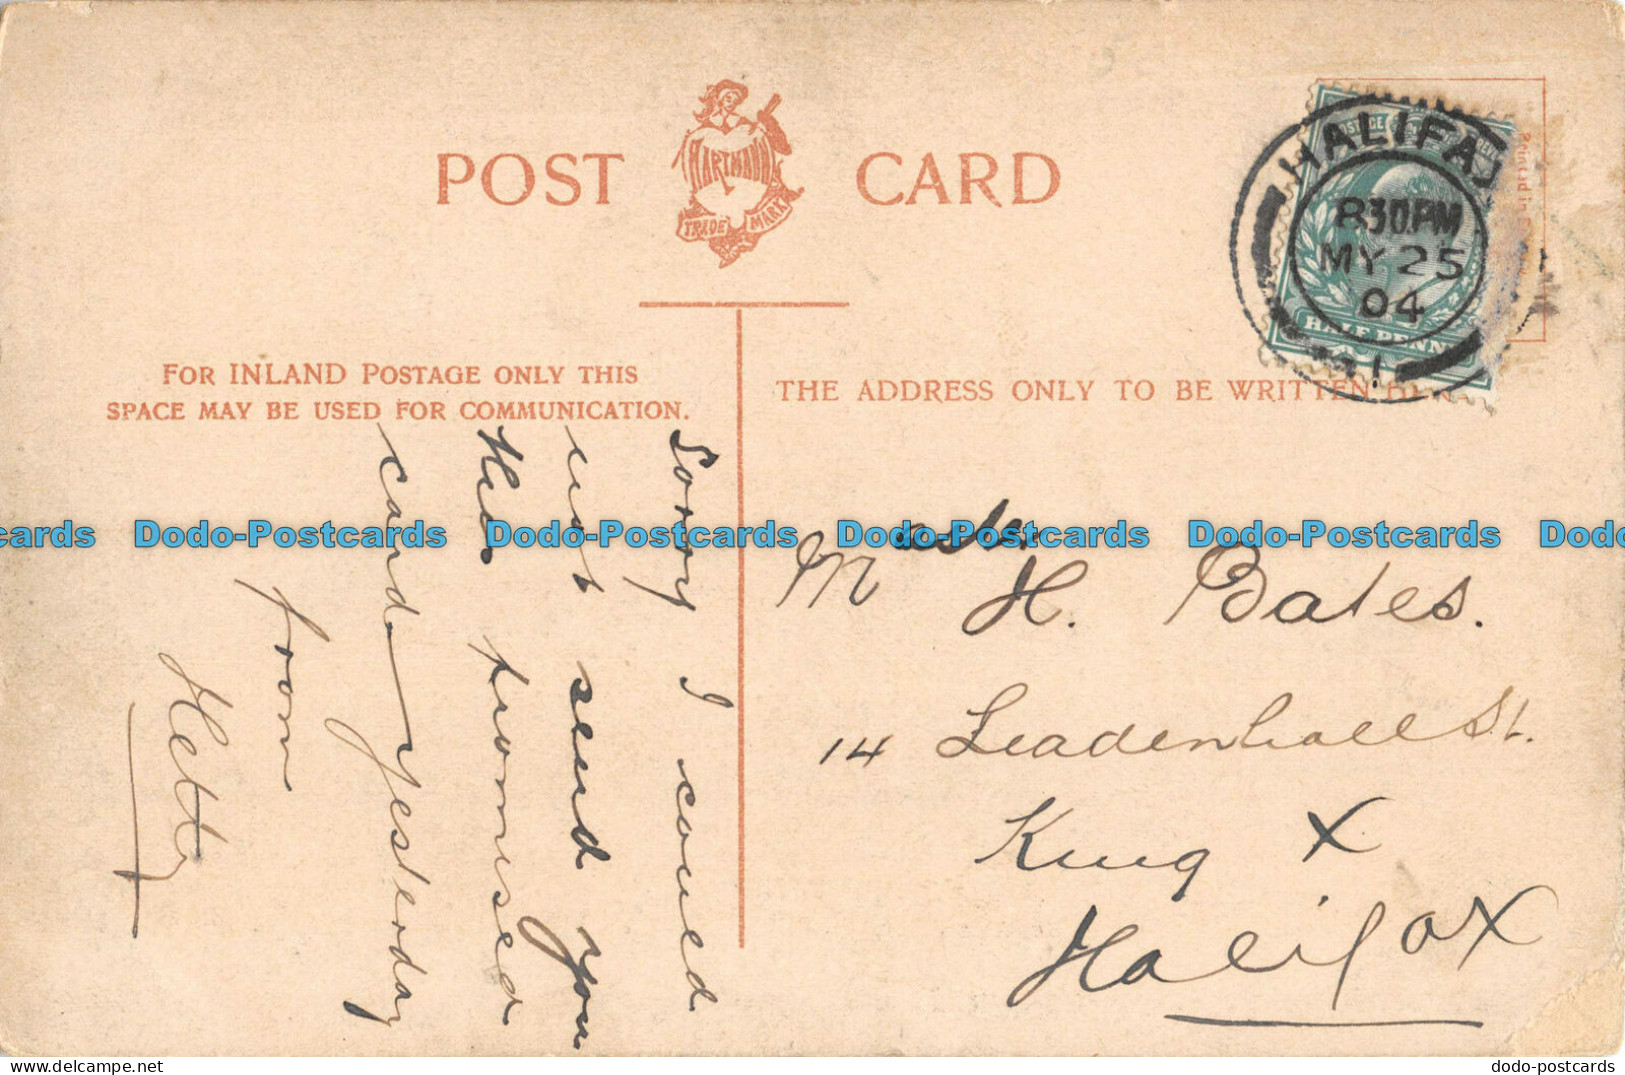 POST CARD
HARTMANN
TRADE MARK
HALIFAX
8 30 PM
MY 25
04
1
POSTAGE
HALF PENNY
Printed in
FOR INLAND POSTAGE ONLY THIS
SPACE MAY BE USED FOR COMMUNICATION.
THE ADDRESS ONLY TO BE WRITTEN HERE
Sorry I could
not send you
this promised
card yesterday
from
Hetty
H. Bates.
14 Leadenhall St.
King X
Halifax
Dodo-Postcards Dodo-Postcards Dodo-Postcards Dodo-Postcards Dodo-Postcards
dodo-postcards